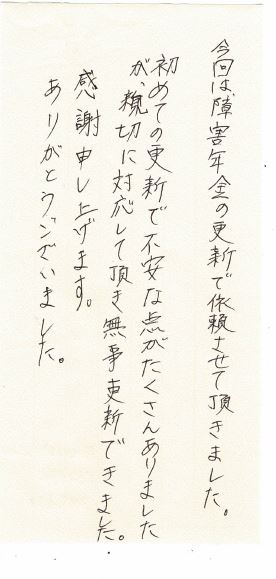 今回は、障害年金の更新で依頼させて頂きました。
初めての更新で不安な点がたくさんありました
が、親切に対応して頂き無事更新できました。
感謝申し上げます。
ありがとうございました。